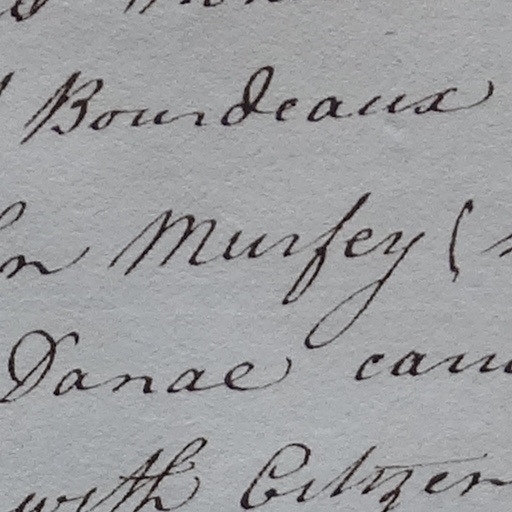 Bourdeaux
Murfey (
Danae cam
with Citizen